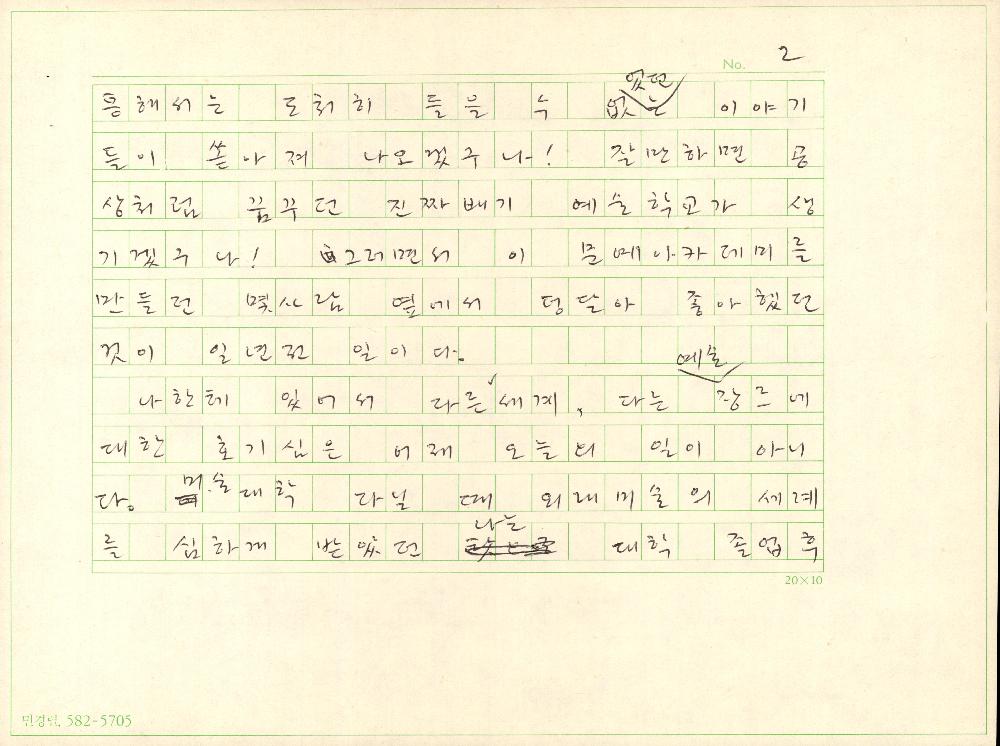 No. 2
통해서는 도저히 들을 수 없었던 이야기
들이 쏟아져 나오겠구나! 잘만하면 공
상처럼 꿈꾸던 진짜배기 예술학교가 생
기겠구나! 그러면서 이 문예아카데미를
만들던 몇사람 옆에서 덩달아 좋아했던
것이 일년전 일이다.
나한테 있어서 다른 세계, 다른 예술 장르에
대한 호기심은 어제 오늘의 일이 아니
다. 미술대학 다닐 때 외래미술의 세례
를 심하게 받았던 나는 대학 졸업 후
20×10
민정렬, 582-5705